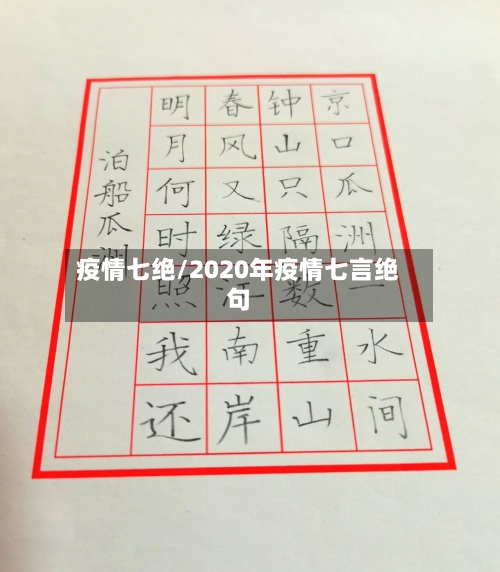 疫情七绝/2020年疫情七言绝
句
京口瓜洲一水间
钟山只隔数重山
春风又绿江南岸
明月何时照我还
泊船瓜洲